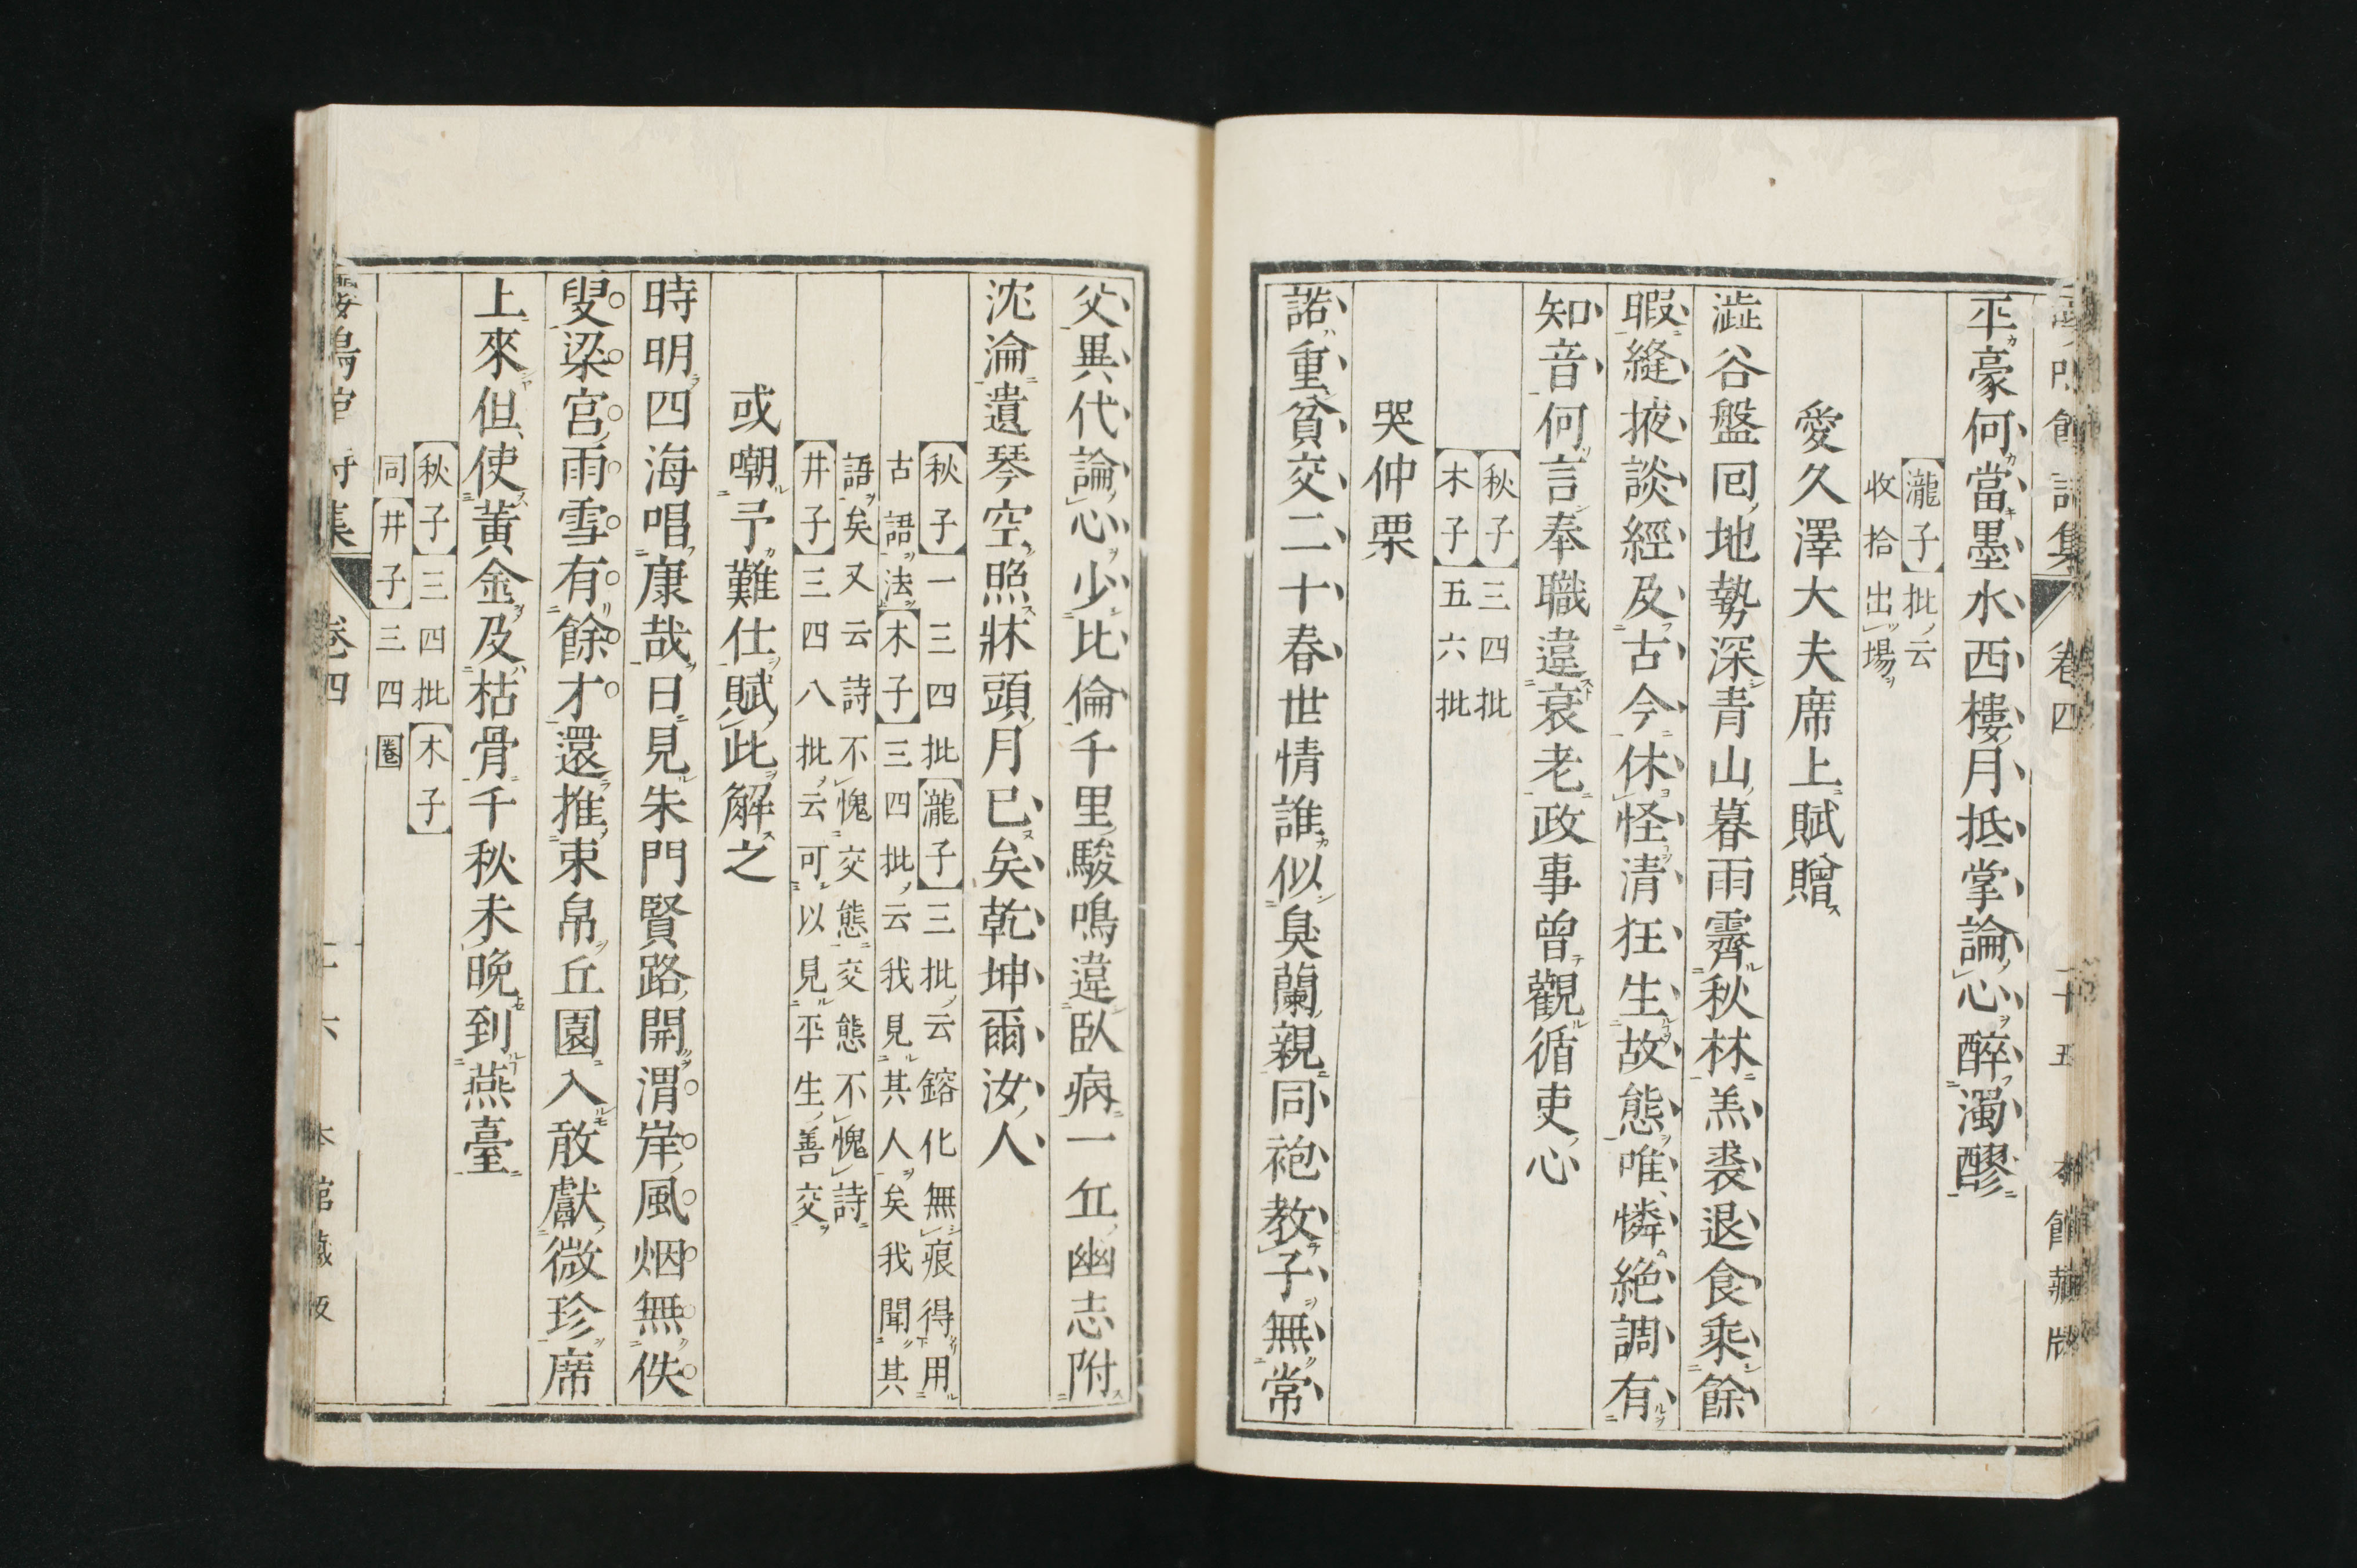 卷四
平豪何當墨水西樓月抵掌論心醉濁醪
瀧子批云
收拾出場
愛久澤大夫席上賦贈
澁谷盤囘地勢深青山暮雨霽秋林羔裘退食乘餘
暇縫掖談經及古今休怪清狂生故態唯憐絶調有
知音何言奉職違衰老政事曾觀循吏心
秋子三四批
木子五六批
哭仲栗
諾重貧交二十春世情誰似臭蘭親同袍教子無常
父異代論心少比倫千里駿鳴違臥病一丘幽志附
沈淪遺琴空照牀頭月已矣乾坤爾汝人
秋子一三四批瀧子三批云鎔化無痕得用
古語法木子三四批云我見其人矣我聞其
語矣又云詩不愧交態交態不愧詩
井子三四八批云可以見平生善交
或嘲予難仕賦此解之
時明四海唱康哉日見朱門賢路開渭岸風烟無佚
叟梁宮雨雪有餘才還推束帛丘園入敢獻微珍席
上來但使黃金及枯骨千秋未晚到燕臺
秋子三四批木子
同井子三四圈
卷四